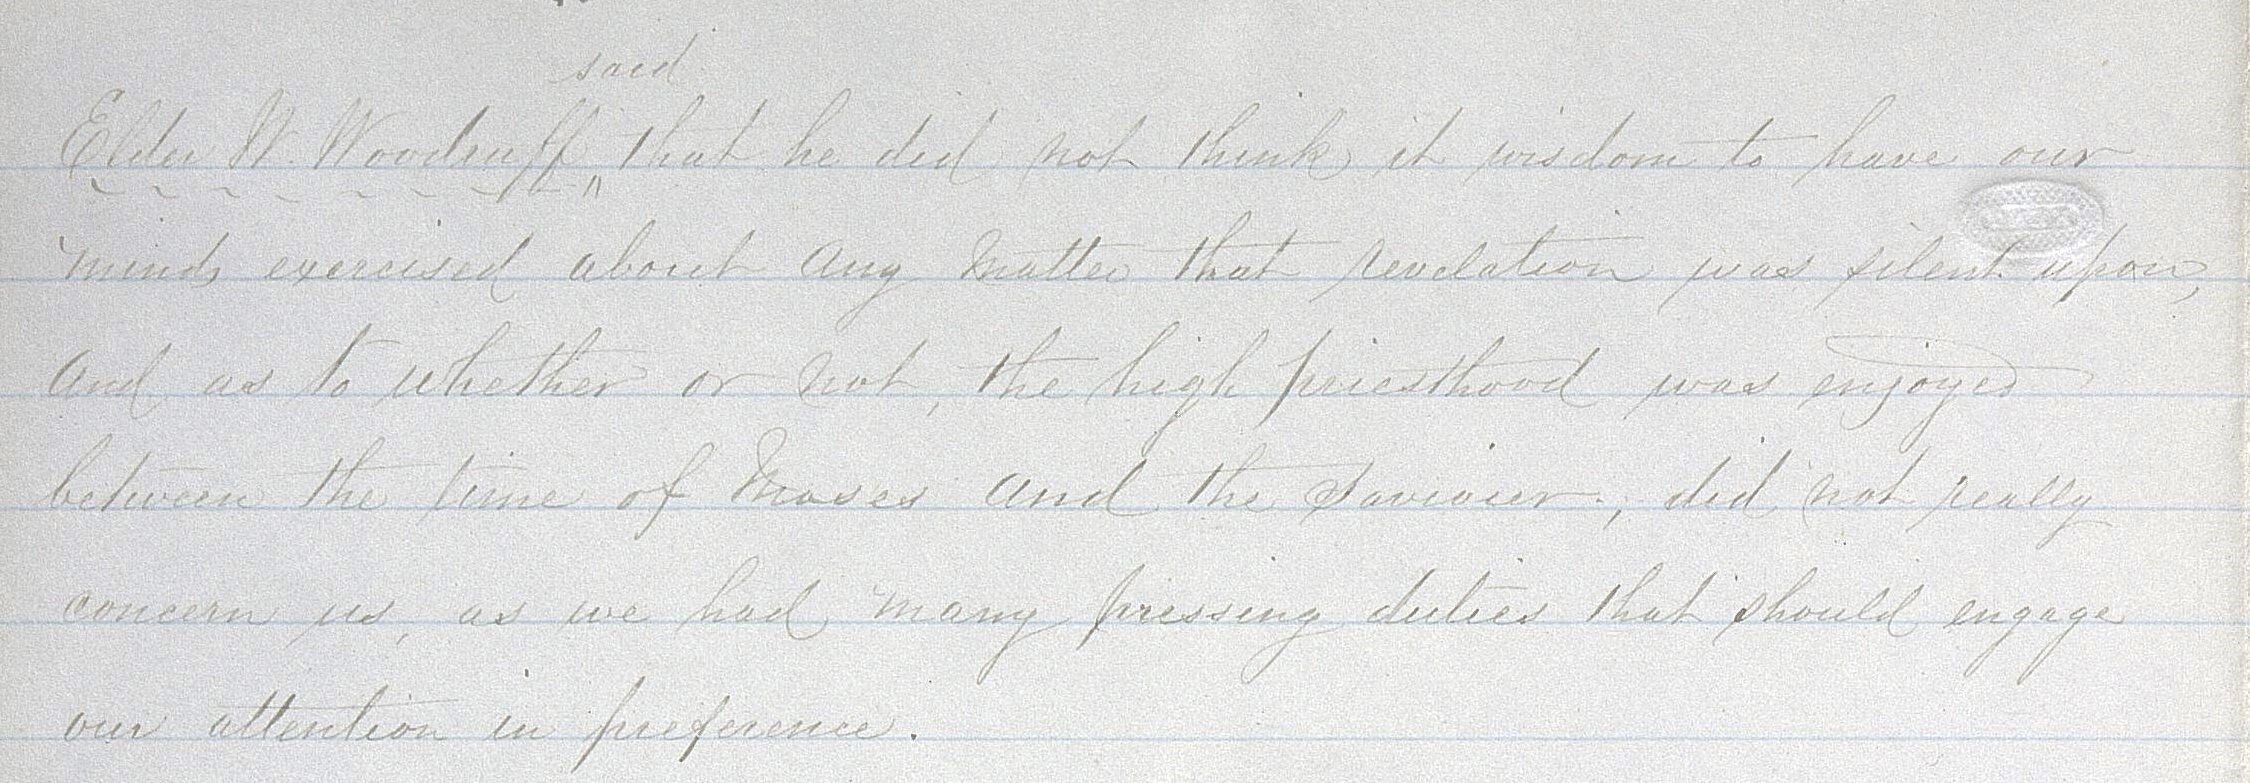 said
Elder W. Woodruff, that he did not think it wisdom to have our
minds exercised about any matter that revelation was silent upon,
and as to whether or not, the high priesthood was enjoyed
between the time of Moses and the Saviour, did not really
concern us, as we had many pressing duties that should engage
our attention in preference.